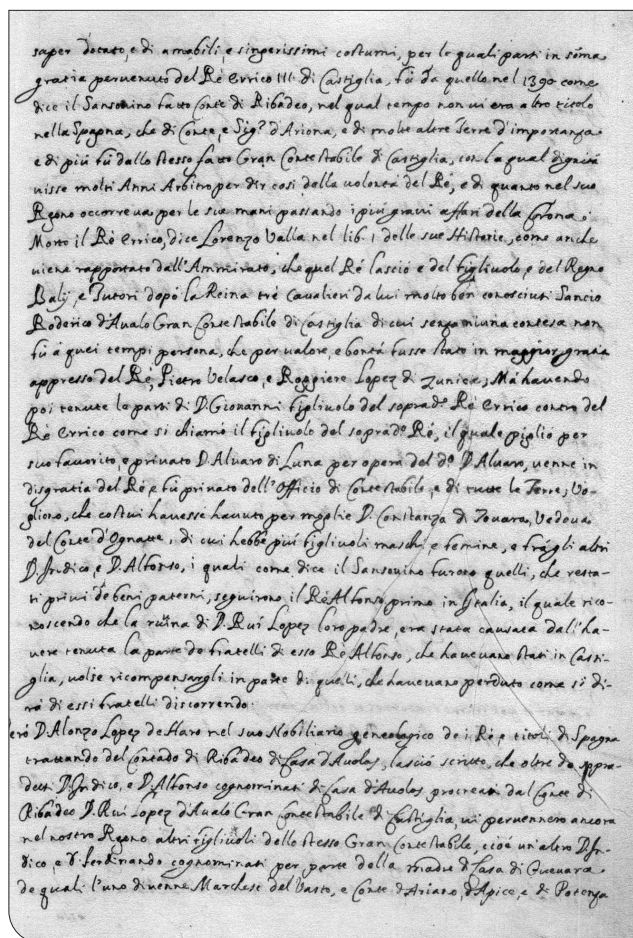 saper dotato, e di amabili, e singerissimi costumi, per le quali parti in sõma
gratia pervenuto del Rè Errico III. di Castiglia, fù da quello nel 1390 come
dice il Sansovino fatto Conte di Ribadeo, nel qual tempo non vi era altro titolo
nella Spagna, che di Conte, e Sig.r d'Ariona, e di molte altre Terre d'importanza
e di più fù dallo stesso fatto Gran Contestabile di Castiglia, con la qual dignità
visse molti Anni Arbitro per dir così della volontà del Rè, e di quanto nel suo
Regno occorreva, per le sue mani passando i più gravi affari della Corona.
Morto il Rè Errico, dice Lorenzo Valla nel lib. 1 delle sue Historie, come anche
viene rapportato dall'Ammirato, che quel Rè lasciò e del figlivolo, e del Regno
Balij, e Tutori dopò la Reina trè Cavalieri da lui molto ben conosciuti Sancio
Roderico d'Avalo Gran Contestabile di Castiglia di cui senza niuna contesa non
fù à quei tempi persona, che per valore, e bontà fusse stato in maggior gratia
appresso del Rè, Pietro Velasco, e Roggiere Lopez di Zunica; Mà havendo
poi tenute le parti di D. Giovanni figlivolo del soprad.o Rè Errico contro del
Rè Errico come si chiamò il figlivolo del soprad.o Rè, il quale pigliò per
suo favorito, e privato D. Alvaro di Luna per opera del d.o D. Alvaro, venne in
disgratia del Rè, e fù privato dell'Officio di Contestabile, e di tutte le Terre, Vo-
gliono, che costui havesse havuto per moglie D. Constanza di Tovara, Vedova
del Conte d'Ognatte, di cui hebbe più figlivoli maschi, e femine, e frà gli altri
D. Indico, e D. Alfonso, i quali come dice il Sansovino furono quelli, che resta-
ti privi de beni paterni, seguirono il Rè Alfonso primo in Italia, il quale rico-
noscendo che la ruina di D. Rui Lopez loro padre, era stata causata dall'ha-
vere tenuta la parte de fratelli di esso Rè Alfonso, che havevano stati in Casti-
glia, volse ricompensargli in parte di quelli, che havevano perduto come si di-
rà di essi fratelli discorrendo.
erò D. Alonzo Lopez de Haro nel suo Nobiliario geneologico de i Rè, e titoli di Spagna
trattando del Contado di Ribadeo di Casa d'Avolos, lasciò scritto, che oltre da sopra-
detti D. Indico, e D. Alfonso cognominati di Casa d'Avolos procreati dal Conte di
Ribadeo D. Rui Lopez d'Avalo Gran Contestabile di Castiglia, vi pervennero ancora
nel nostro Regno altri figlivoli dello stesso Gran Contestabile, cioè un'altro D. In-
dico, e D. Ferdinando cognominati per parte della madre di Casa di Guevara
de quali l'uno divenne Marchese del Vasto, e Conte d'Ariano, d'Apice, e di Potenza